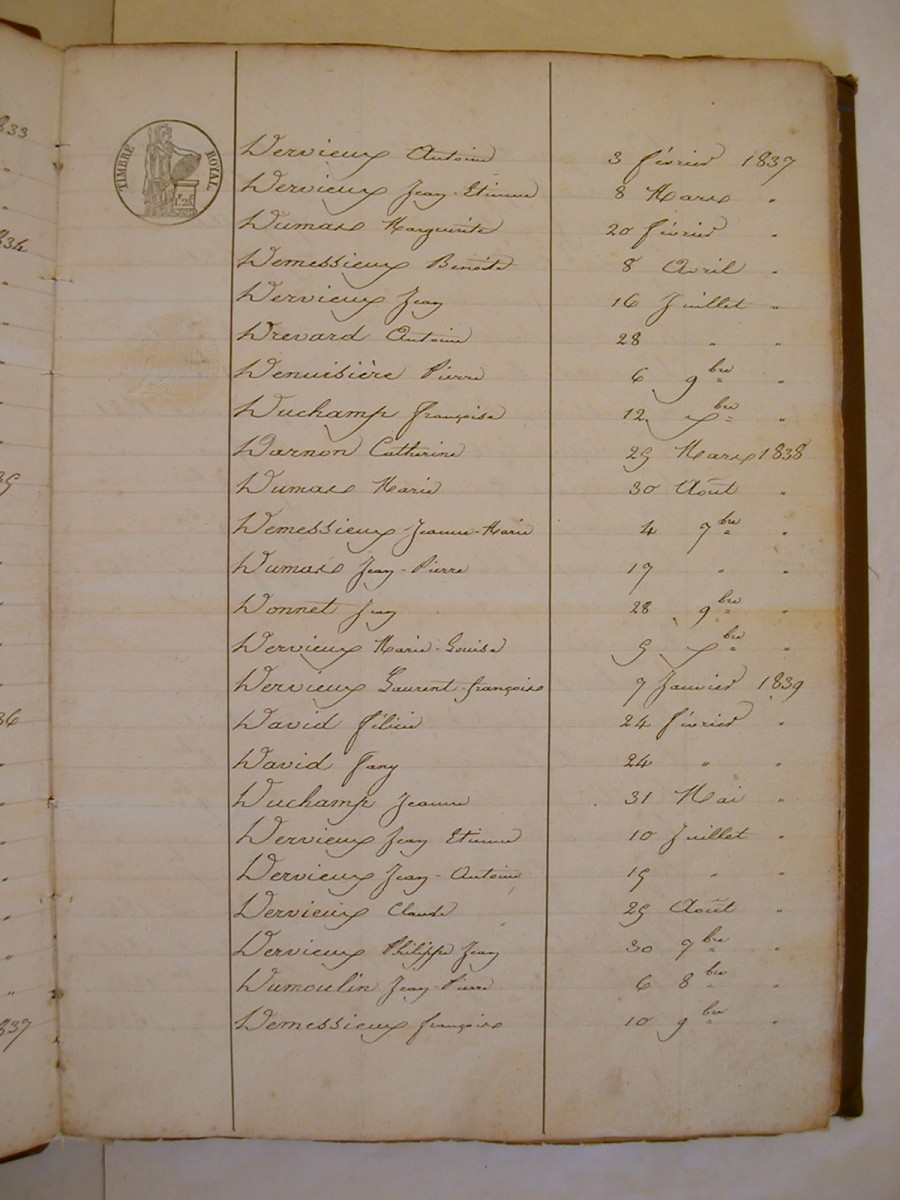 833
834
36
837
TIMBRE ROYAL
1F 25
Dervieux Antoine 3 février 1837
Dervieux Jean-Etienne 8 Mars "
Dumas Marguerite 20 février "
Demessieux Benoite 8 Avril "
Dervieux Jean 16 Juillet "
Drevard Antoine 28 " "
Denuisière Pierre 6 9bre "
Duchamp françoise 12 xbre "
Darnon Catherine 25 Mars 1838
Dumas Marie 30 Août "
Demessieux Jeanne-Marie 4 7bre "
Dumas Jean-Pierre 17 " "
Donnet Jean 28 9bre "
Dervieux Marie-Louise 5 xbre "
Dervieux Laurent-françoise 7 Janvier 1839
David 24 février "
David Fany 24 " "
Duchamp Jeanne 31 Mai "
Dervieux Jean Etienne 10 Juillet "
Dervieux Jean-Antoine 15 " "
Dervieux Claude 25 Août "
Dervieux Philippe Jean 30 7bre "
Dumoulin Jean-Pierre 6 8bre "
Demessieux françoise 10 9bre "